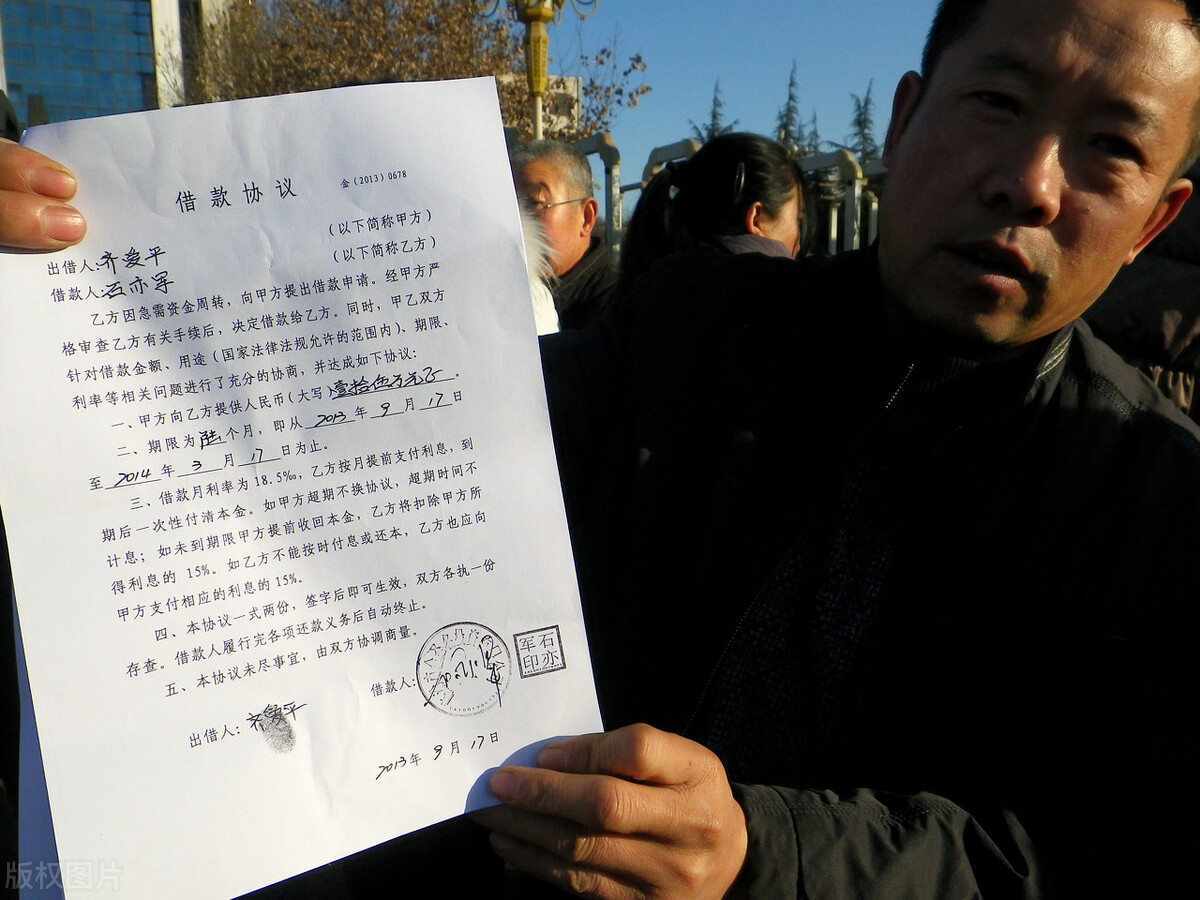 借款协议
金(2013)0678
出借人:齐爱平 (以下简称甲方)
借款人:石亦军 (以下简称乙方)
乙方因急需资金周转,向甲方提出借款申请。经甲方严
格审查乙方有关手续后,决定借款给乙方。同时,甲乙双方
针对借款金额、用途(国家法律法规允许的范围内)、期限、
利率等相关问题进行了充分的协商,并达成如下协议:
一、甲方向乙方提供人民币(大写)壹拾伍万元正。
二、期限为陆个月,即从2013年9月17日
至2014年3月17日为止。
三、借款月利率为18.5‰,乙方按月提前支付利息,到
期后一次性付清本金。如甲方超期不换协议,超期时间不
计息;如未到期限甲方提前收回本金,乙方将扣除甲方所
得利息的15%。如乙方不能按时付息或还本,乙方也应向
甲方支付相应的利息的15%。
四、本协议一式两份,签字后即可生效,双方各执一份
存查。借款人履行完各项还款义务后自动终止。
五、本协议未尽事宜,由双方协调商量。
借款人:
石亦
军印
出借人:齐爱平
2013年9月17日
版权图片